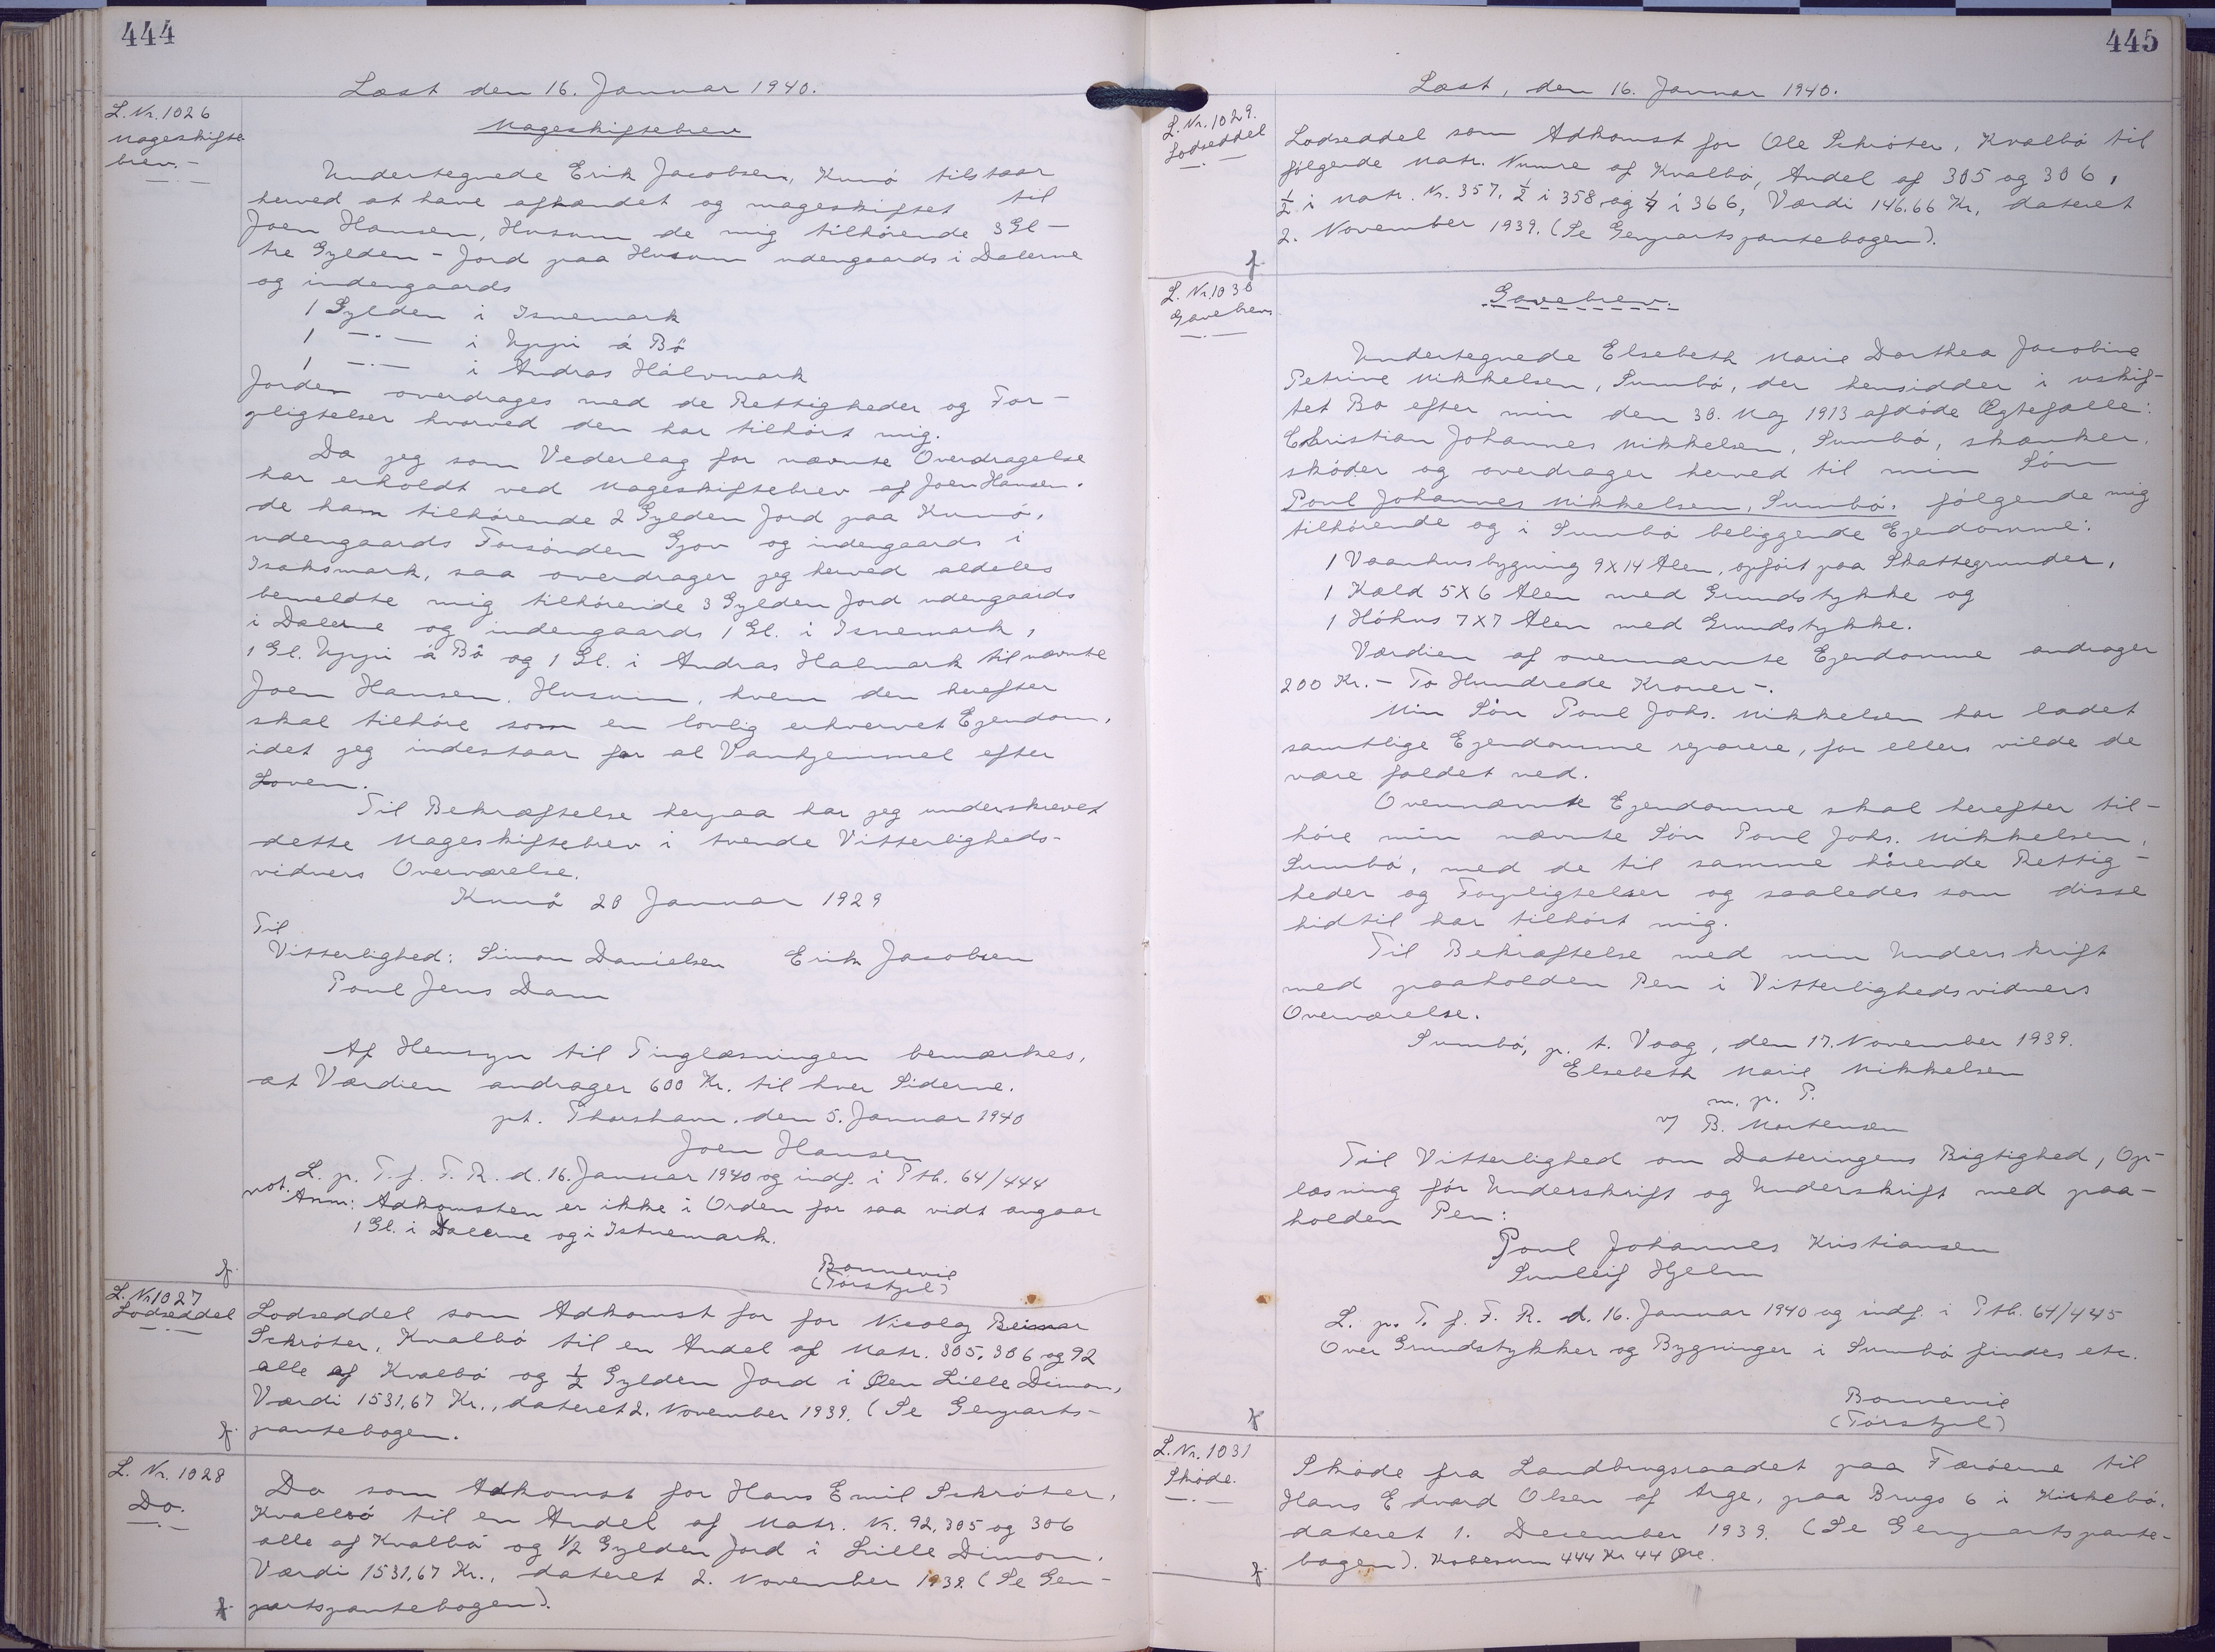 444
Læst den 16. Januar 1940.
L. Nr. 1026
Mageskifte
brev. -
Mageskiftebrev
Undertegnede Erik Jacobsen, Kunö tilstaar
herved at have afhændet og mageskiftet til
Joen Hansen, Husum de mig tilhörende 3 Gl -
tre Gylden - Jord paa Husum udengaards i Dalerne
og indengaards
1 Gylden i Isnemark
1 -·- i Uppi á Bö
1 -·- i Andras Hálvmark
Jorden overdrages med de Rettigheder og For-
pligtelser hvorved den har tilhört mig.
Da jeg som Vederlag for nævnte Overdragelse
har erholdt ved Mageskiftebrev af Joen Hansen.
de ham tilhörende 2 Gylden Jord paa Kunö,
udengaards Forsönden Gjov og indengaards i
Isaksmark, saa overdrager jeg herved aldeles
bemeldte mig tilhörende 3 Gylden Jord udengaards
i Dalerne og indengaards 1 Gl. i Isnemark,
1 Gl. Uppi á Bö og 1 Gl. i Andras Halmark til nævnte
Joen Hansen. Husum, hvem den herefter
skal tilhöre som en lovlig erhvervet Ejendom,
idet jeg indestaar for al Vanhjemmel efter
Loven.
Til Bekræftelse herpaa har jeg underskrevet
dette Mageskiftebrev i tvende Vitterligheds-
vidners Overværelse.
Kunö 20 Januar 1929
Til
Vitterlighed: Simon Danielsen Erik Jacobsen
Poul Jens Dam
Af Hensyn til Tinglæsningen bemærkes,
at Værdien andrager 600 Kr. til hver Siderne.
pt. Thorshavn. den 5. Januar 1940
Joen Hansen
L. p. T. f. F. R. d. 16. Januar 1940 og indf. i Ptb. 64/444
not. Anm: Adkomsten er ikke i Orden for saa vidt angaar
1 Gl. i Dalerne og i Istnemark.
Bonnevie
(Tórstjil)
f.
L. Nr 1027
Lodseddel
Lodseddel som Adkomst for for Nicolaj Beinar
Schröter, Kvalbö til en Andel af Matr. 305, 306 og 92
alle af Kvalbö og ½ Gylden Jord i Øen Lille Dimon,
Værdi 1531,67 Kr., dateret 2. November 1939. (Se Genparts-
pantebogen.
f.
L. Nr. 1028
Do.
Do som Adkomst for Hans Emil Schröter,
Kvalbö til en Andel af Matr. Nr. 92, 305 og 306
alle af Kvalbö og 1/2 Gylden Jord i Lille Dimon.
Værdi 1531,67 Kr., dateret 2. November 1939. (Se Gen-
partspantebogen).
f.
445
Læst, den 16. Januar 1940.
L. Nr. 1029.
Lodseddel
Lodseddel som Adkomst for Ole Schröter, Kvalbö til
fölgende Matr. Numre af Kvalbö, Andel af 305 og 306,
½ i Matr. Nr. 357, ½ i 358 og ¼ i 366, Værdi 146.66 Kr. dateret
2. November 1939. (Se Genpartspantebogen).
f.
L. Nr. 1030
Gavebrev
Gavebrev.
Undertegnede Elsebeth Marie Dorthea Jacobine
Petrine Mikkelsen, Sumbö, der hensidder i uskif-
tet Bo efter min den 30. Maj 1913 afdöde Ægtefælle:
Christian Johannes Mikkelsen, Sumbö, skænker,
sköder og overdrager herved til min Sön
Poul Johannes Mikkelsen, Sumbö, fölgende mig
tilhörende og i Sumbö beliggende Ejendomme:
1 Vaanhusbygning 9x14 Alen, opfört paa Skattegrunder,
1 Kald 5x6 Alen med Grundstykke og
1 Höhus 7x7 Alen med Grundstykke.
Værdien af ovennævnte Ejendomme andrager
200 Kr. - To Hundrede Kroner -.
Min Sön Poul Johs. Mikkelsen har ladet
samtlige Ejendomme reparere, for ellers vilde de
være faldet ned.
Ovennævnte Ejendomme skal herefter til-
höre min nævnte Sön Poul Johs. Mikkelsen,
Sumbö, med de til samme hörende Rettig-
heder og Forpligtelser og saaledes som disse
hidtil har tilhört mig.
Til Bekræftelse med min Underskrift
med paaholden Pen i Vitterlighedsvidners
Overværelse.
Sumbö, p. t. Vaag, den 17. November 1939.
Elsebeth Marie Mikkelsen
m. p. P.
v/ B. Mortensen
Til Vitterlighed om Dateringens Rigtighed, Op-
læsning för Underskrift og Underskrift med paa-
holden Pen:
Poul Johannes Kristiansen
Sunleif Hjelm
L. p. T. f. F. R. d. 16. Januar 1940 og indf. i Ptb. 64/445
Over Grundstykker og Bygninger i Sumbö findes etc.
Bonnevie
(Tórstjil)
f
L. Nr. 1031
Sköde.
Sköde fra Landbrugsraadet paa Færöerne til
Hans Edvard Olsen af Arge, paa Brugs 6 i Kirkebö.
dateret 1. December 1939. (Se Genpartspante-
bogen). Købesum 444 Kr 44 Øre.
f.